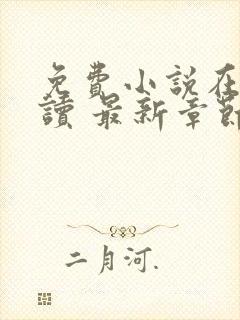 免費小說在
讀 最新章節
二月河.